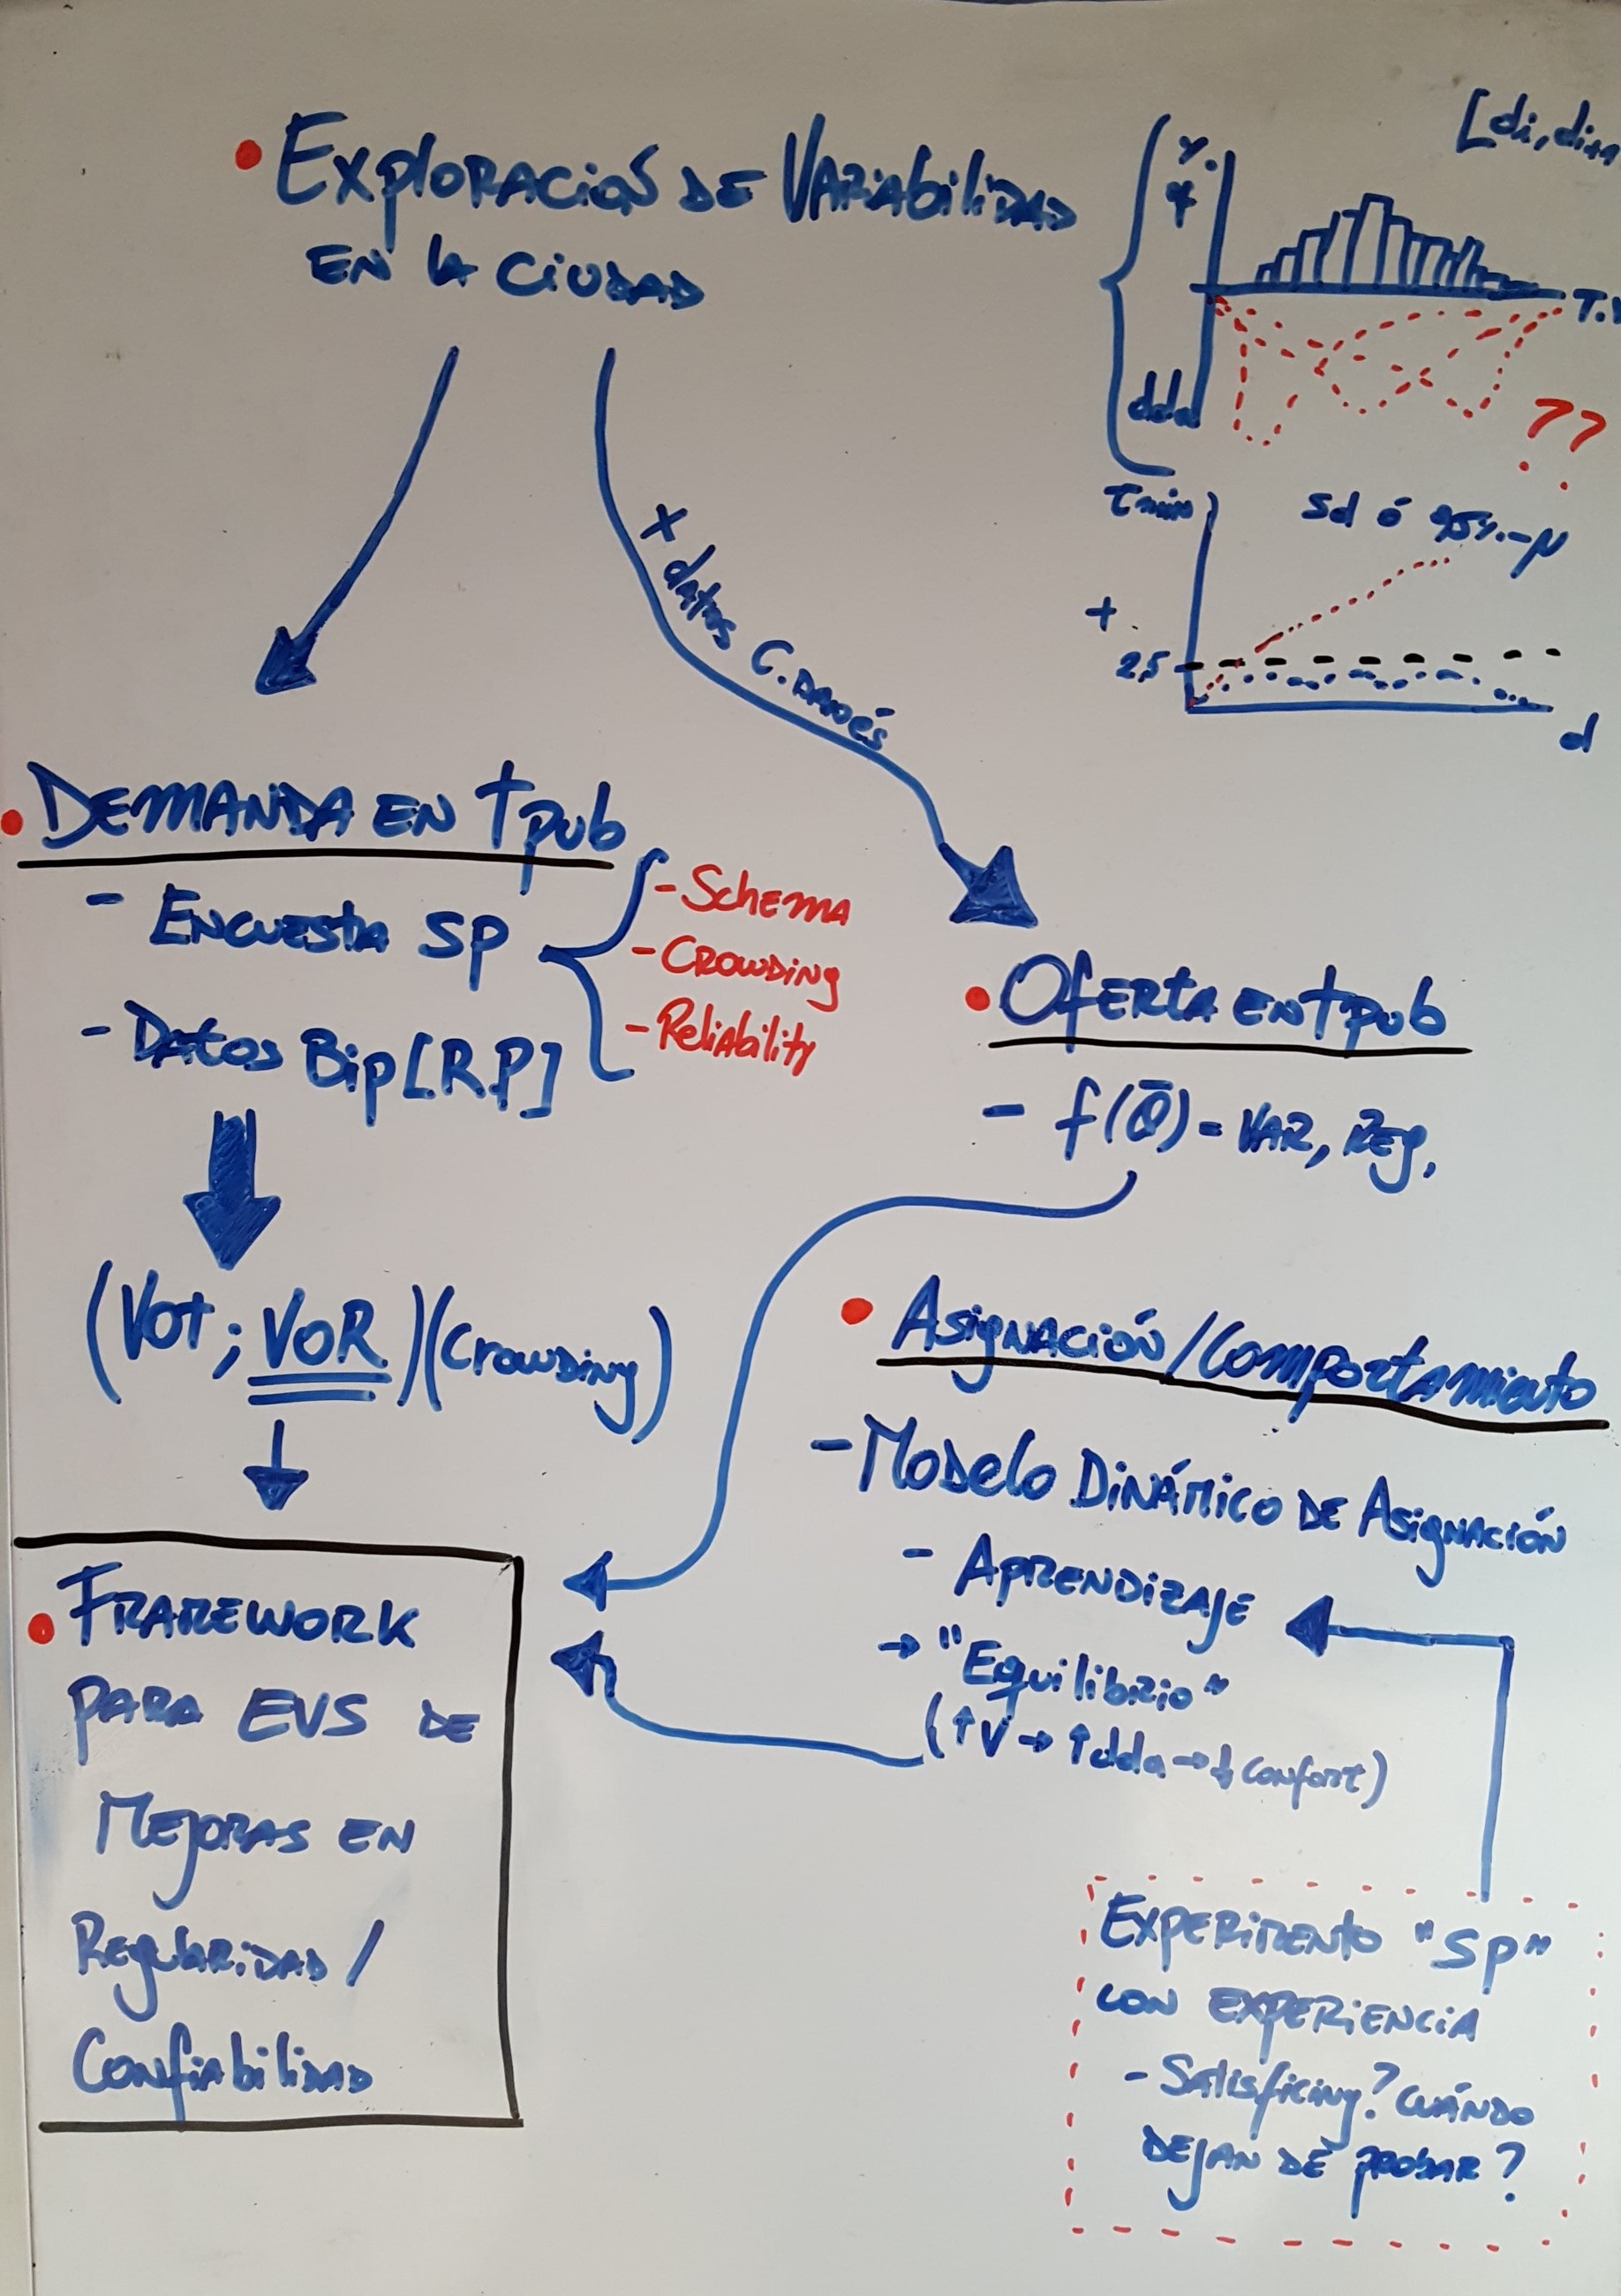 • Exploración de Variabilidad
en la Ciudad
[di, di+1
%
T.V
dda
??
τmin
sd ó 95%-μ
+
2,5
d
x datos C. Davés
• Demanda en tpub
- Encuesta SP
- Datos Bip [RP]
- Schema
- Crowding
- Reliability
(Vot; VoR)(Crowding)
• Oferta en tpub
- f(Q̄) = Var, Reg,
• Asignación/Comportamiento
- Modelo Dinámico de Asignación
- Aprendizaje
→ "Equilibrio"
(↑V → ↑dda → ↓ confort)
• Framework
para EVS de
Mejoras en
Regularidad /
Confiabilidad
Experimento "SP"
con experiencia
- Satisficing? cuándo
dejan de probar?